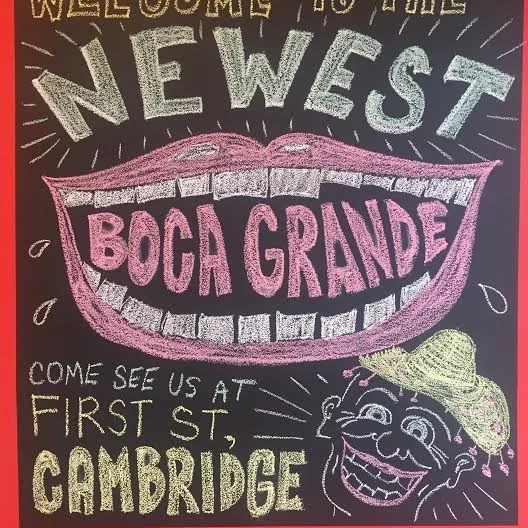 WELCOME TO THE
NEWEST
BOCA GRANDE
COME SEE US AT
FIRST ST,
CAMBRIDGE